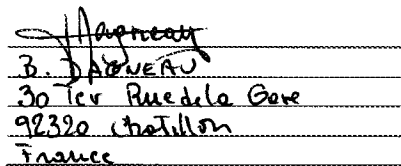 Dagneau
B. DAGNEAU
30 Ter Rue de la Gare
92320 Chatillon
France